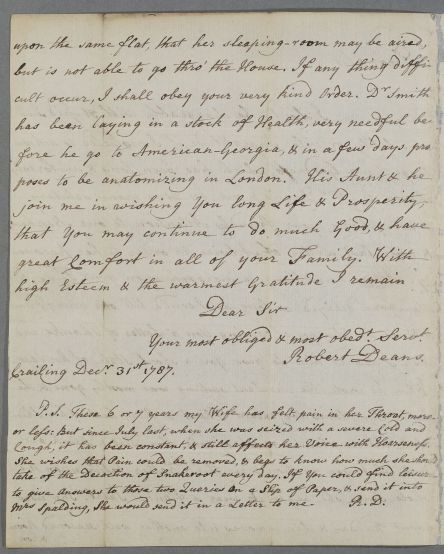 upon the same flat, that her sleeping-room may be aired,
but is not able to go thro' the House. If any thing diffi
cult occur, I shall obey your very kind Order. Dr. Smith
has been laying in a stock of Health, very needful be
fore he go to American-Georgia, & in a few days pro
poses to be anatomizing in London. His Aunt & he
join me in wishing You long Life & Prosperity,
that You may continue to do much Good, & have
great Comfort in all of your Family. With
high Esteem & the warmest Gratitude I remain
Dear Sir
Your most obliged & most obedt. Servt.
Robert Deans.
Crailing Decr. 31st. 1787.
P.S. These 6 or 7 years my Wife has felt pain in her Throat, more
or less: But since July last, when she was seized with a severe Cold and
Cough, it has been constant, & still affects her Voice with Hoarseness.
She wishes that Pain could be removed, & begs to know how much she should
take of the Decoction of Snakeroot every day. If You could find leisure
to give Answers to those two Queries on a Slip of Paper, & send it into
Mrs Spalding, She would send it in a Letter to me. R.D.